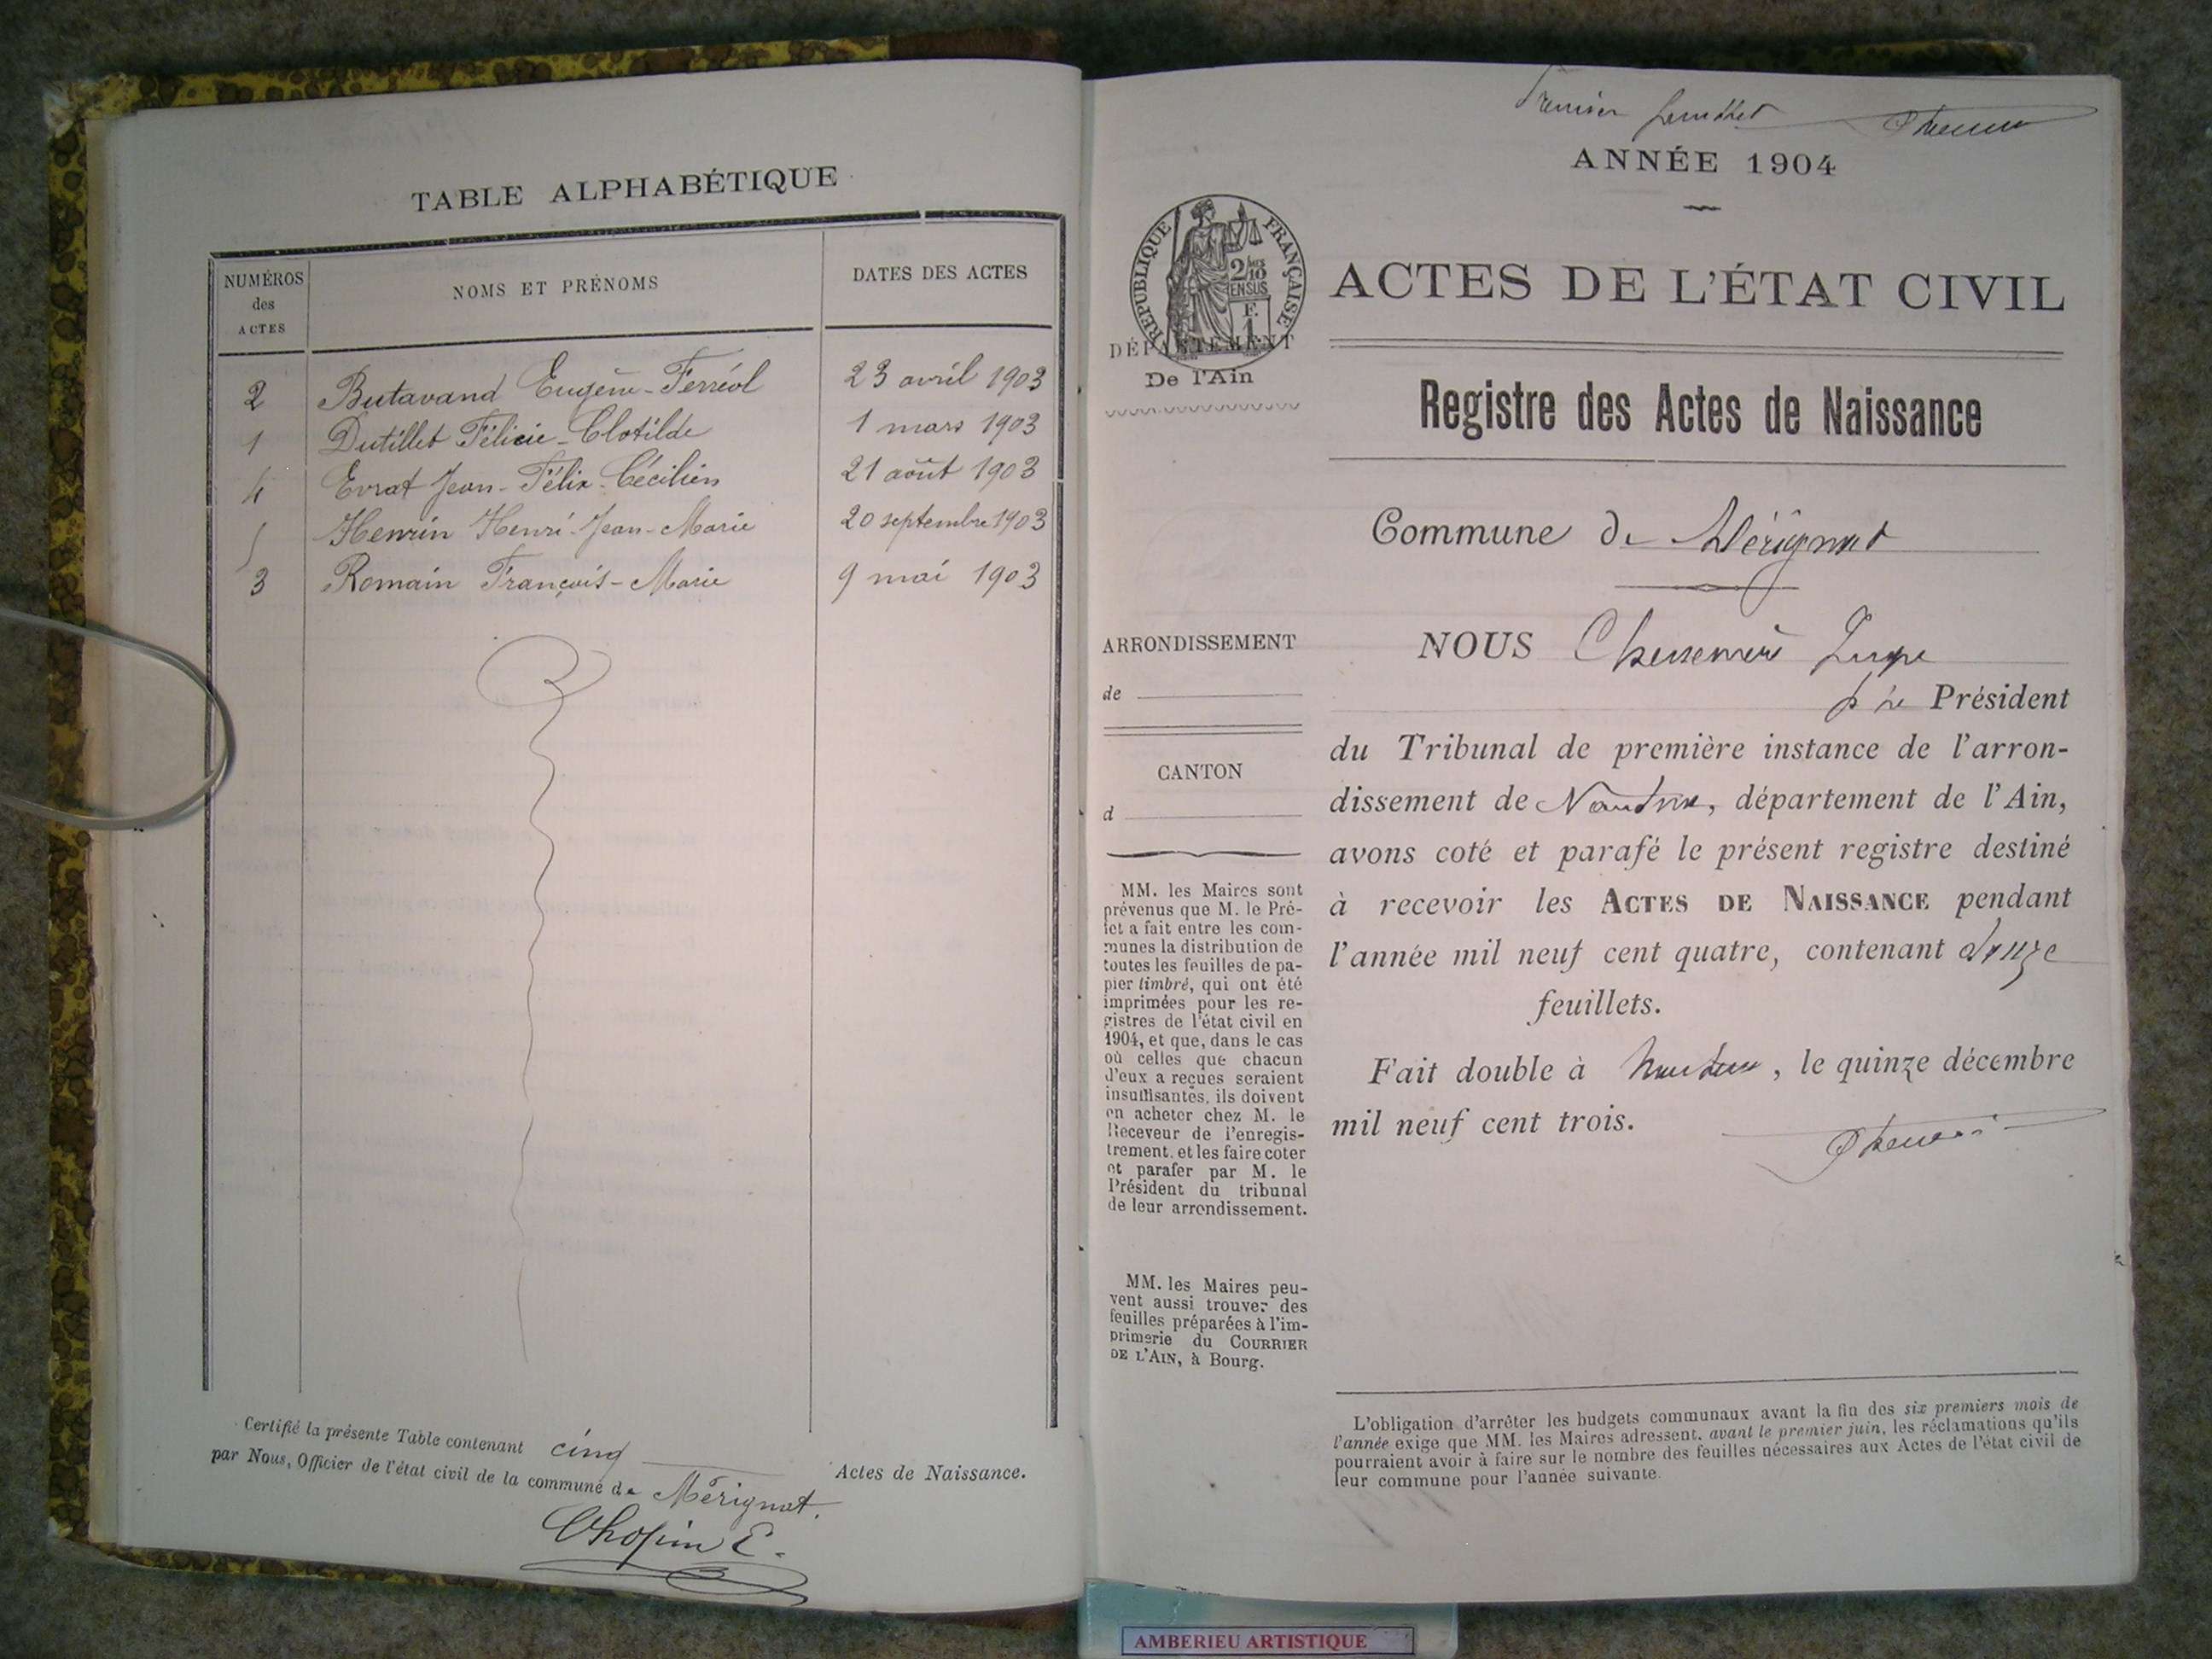 TABLE ALPHABÉTIQUE
NUMÉROS
des
ACTES
NOMS ET PRÉNOMS
DATES DES ACTES
2 Butavand Eugène-Ferréol 23 avril 1903
1 Dutillet Félicie-Clotilde 1 mars 1903
4 Evrat Jean-Félix-Cécilien 21 août 1903
5 Henrin Henri-Jean-Marie 20 septembre 1903
3 Romain François-Marie 9 mai 1903
Certifié la présente Table contenant cinq
Actes de Naissance.
par Nous, Officier de l'état civil de la commune de Mérignat.
Chopin E.
Premier feuillet
ANNÉE 1904
RÉPUBLIQUE FRANÇAISE
2/10
EN SUS
F.
1
DÉPARTEMENT
De l'Ain
ACTES DE L'ÉTAT CIVIL
Registre des Actes de Naissance
Commune de Mérignat
ARRONDISSEMENT
de
CANTON
d
MM. les Maires sont
prévenus que M. le Pré-
fet a fait entre les com-
munes la distribution de
toutes les feuilles de pa-
pier timbré, qui ont été
imprimées pour les re-
gistres de l'état civil en
1904, et que, dans le cas
où celles que chacun
d'eux a reçues seraient
insuffisantes, ils doivent
en acheter chez M. le
Receveur de l'enregis-
trement, et les faire coter
et parafer par M. le
Président du tribunal
de leur arrondissement.
MM. les Maires peu-
vent aussi trouver des
feuilles préparées à l'im-
primerie du COURRIER
DE L'AIN, à Bourg.
NOUS
Président
du Tribunal de première instance de l'arron-
dissement de Nantua, département de l'Ain,
avons coté et parafé le présent registre destiné
à recevoir les ACTES DE NAISSANCE pendant
l'année mil neuf cent quatre, contenant douze
feuillets.
Fait double à Nantua, le quinze décembre
mil neuf cent trois.
L'obligation d'arrêter les budgets communaux avant la fin des six premiers mois de
l'année exige que MM. les Maires adressent, avant le premier juin, les réclamations qu'ils
pourraient avoir à faire sur le nombre des feuilles nécessaires aux Actes de l'état civil de
leur commune pour l'année suivante.
AMBERIEU ARTISTIQUE